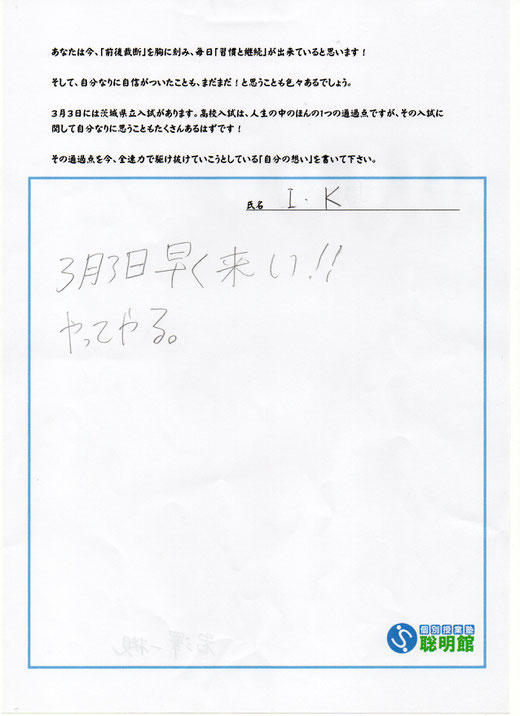 あなたは今、「前後裁断」を胸に刻み、毎日「習慣と継続」が出来ていると思います！
そして、自分なりに自信がついたことも、まだまだ！と思うことも色々あるでしょう。
３月３日には茨城県立入試があります。高校入試は、人生の中のほんの1つの通過点ですが、その入試に
関して自分なりに思うこともたくさんあるはずです！
その通過点を今、全速力で駆け抜けていこうとしている「自分の想い」を書いて下さい。
氏名 I・K
3月3日早く来い!!
やってやる。
個別授業塾
聡明館